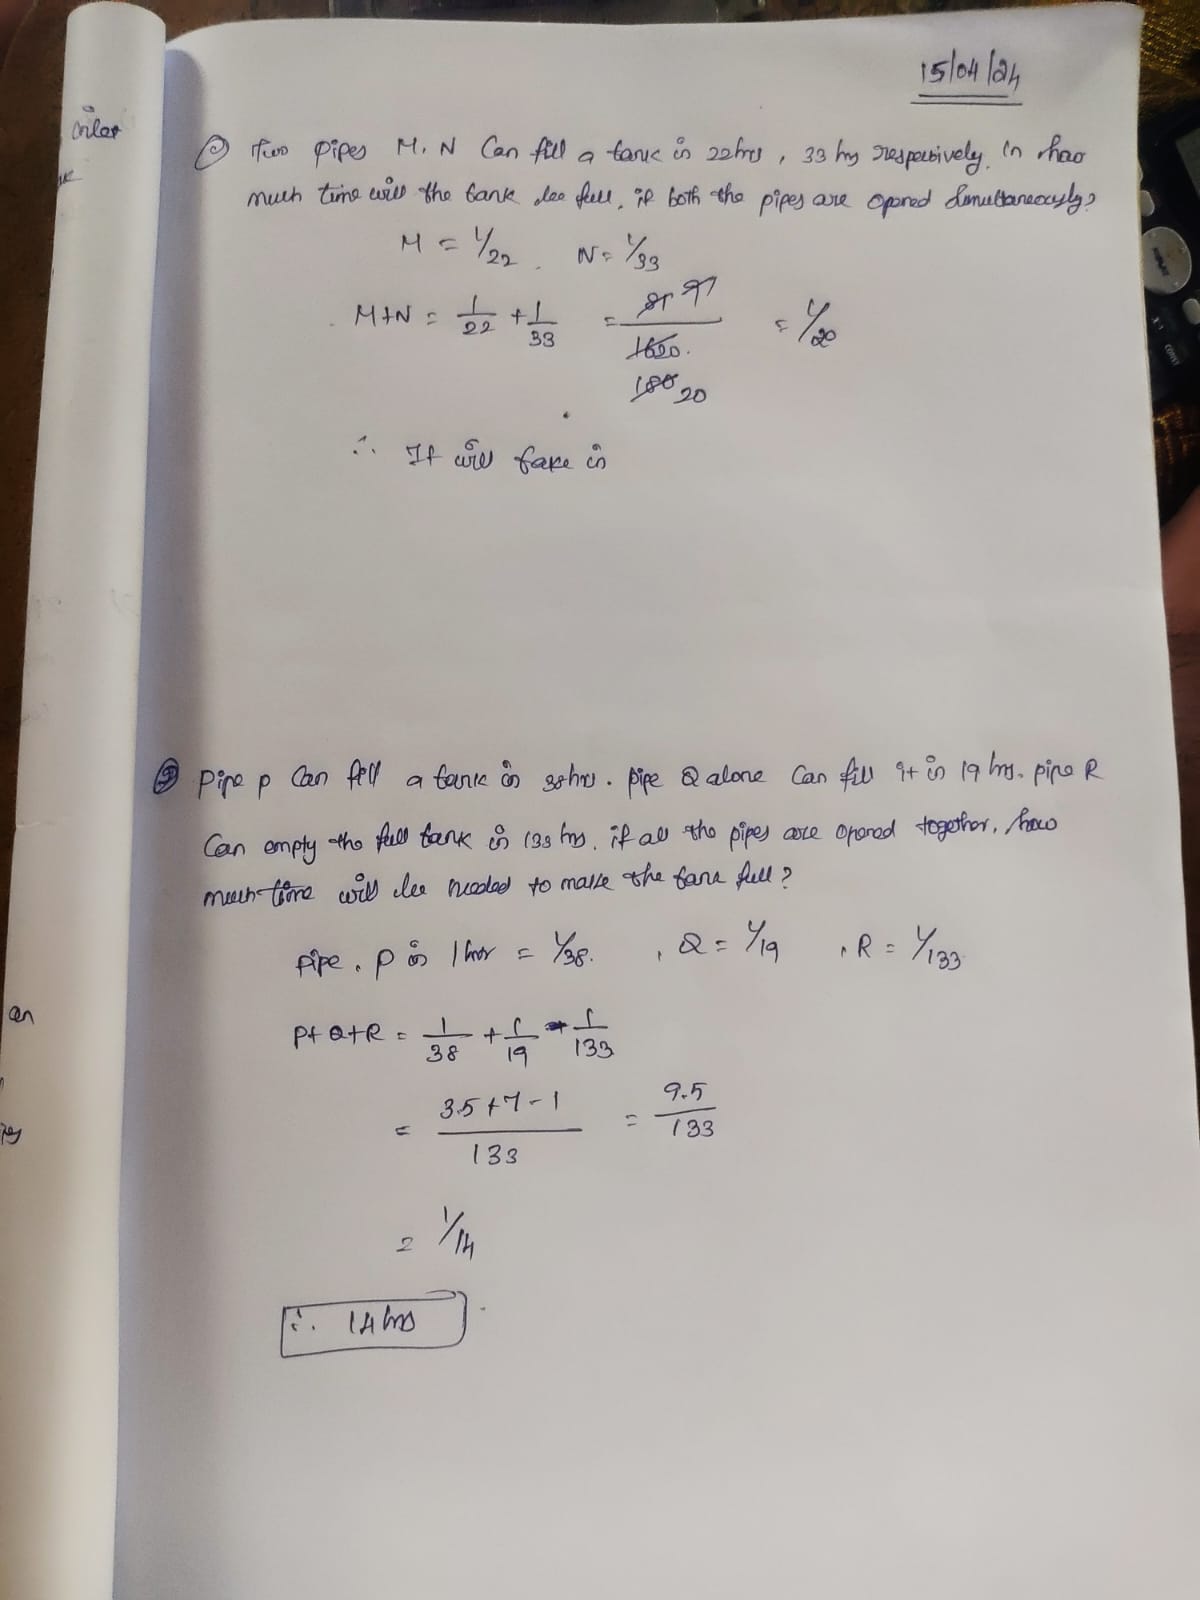 15/04/24
① Two pipes M, N Can fill a tank in 22hrs, 33 hrs respectively. In how
much time will the tank be full, if both the pipes are opened simultaneously?
M = 1/22, N = 1/33
M+N = 1/22 + 1/33 = 81 9 / 1620 180 20 = 1/20
∴ It will take in
② Pipe p Can fill a tank in 38hrs. pipe Q alone Can fill it in 19 hrs. pipe R
Can empty the full tank in 133 hrs. if all the pipes are opened together, how
much time will be needed to make the tank full?
pipe, p in 1 hour = 1/38. , Q = 1/19 , R = 1/133
P+Q+R = 1/38 + 1/19 - 1/133
= 3.5+7-1 / 133 = 9.5 / 133
= 1/14
∴ 14hrs
an